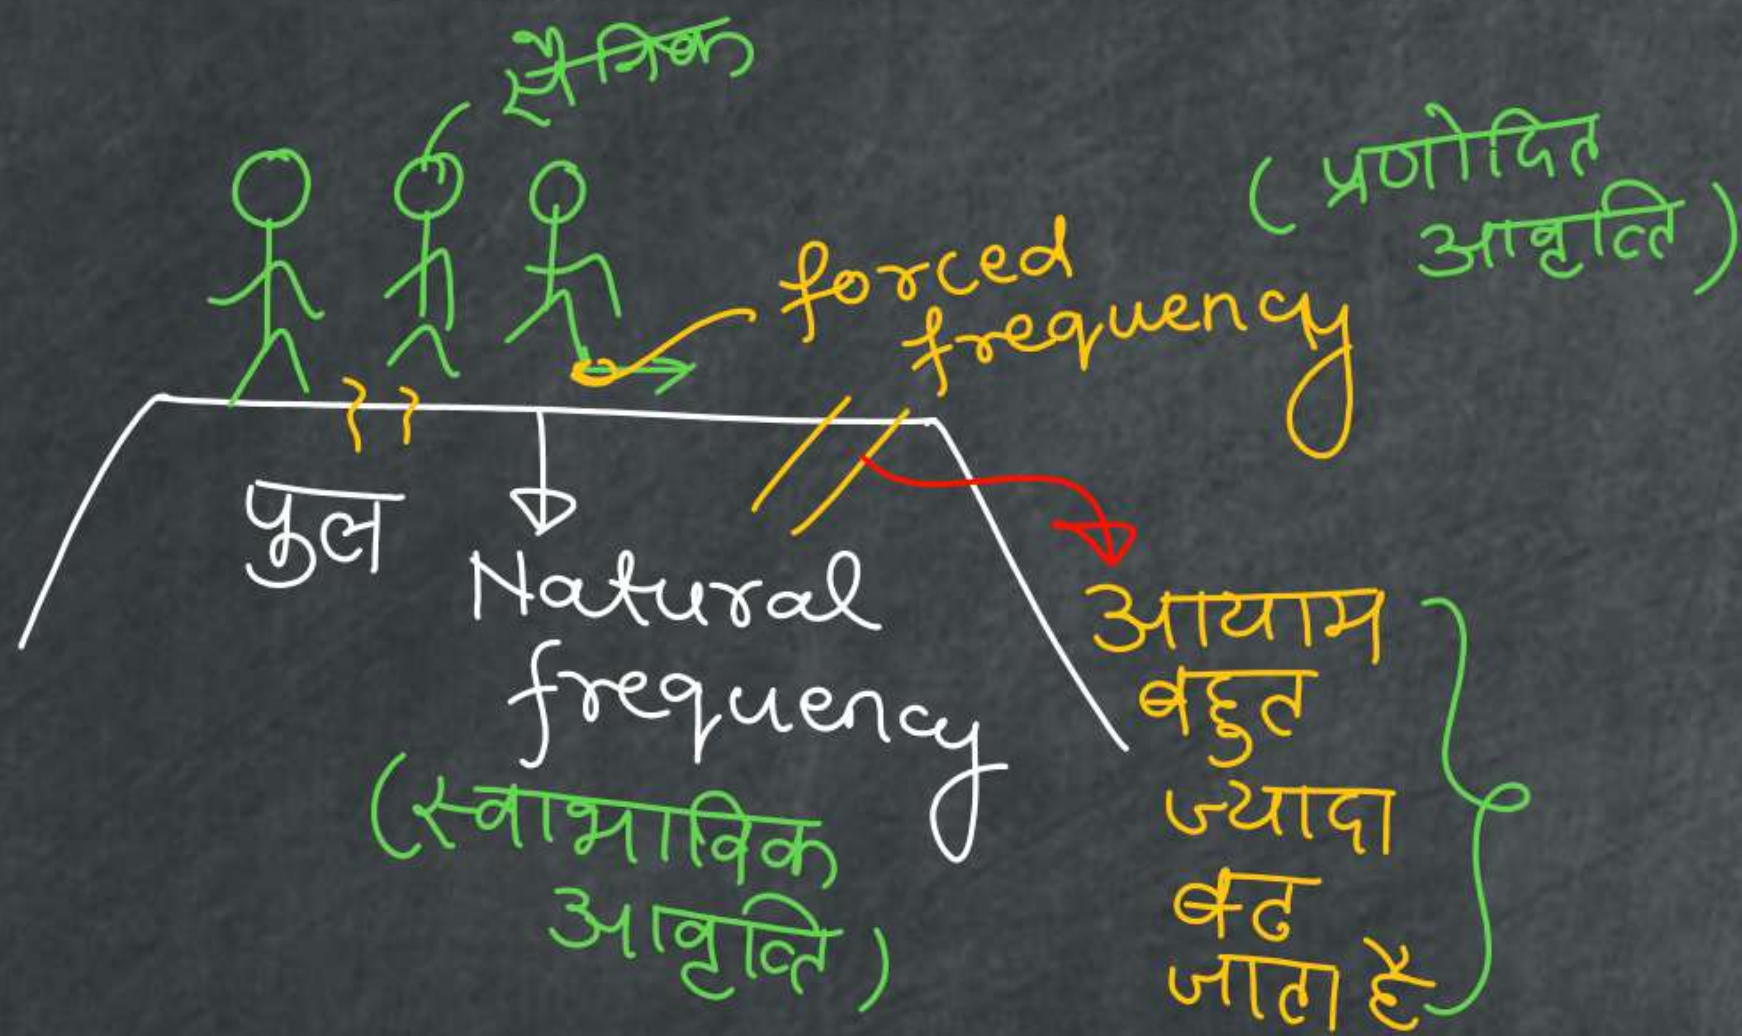 सैनिक
( प्रणोदित
आवृत्ति )
forced
frequency
पुल
Natural
frequency
(स्वाभाविक
आवृत्ति )
आयाम
बहुत
ज्यादा
बढ
जाता है